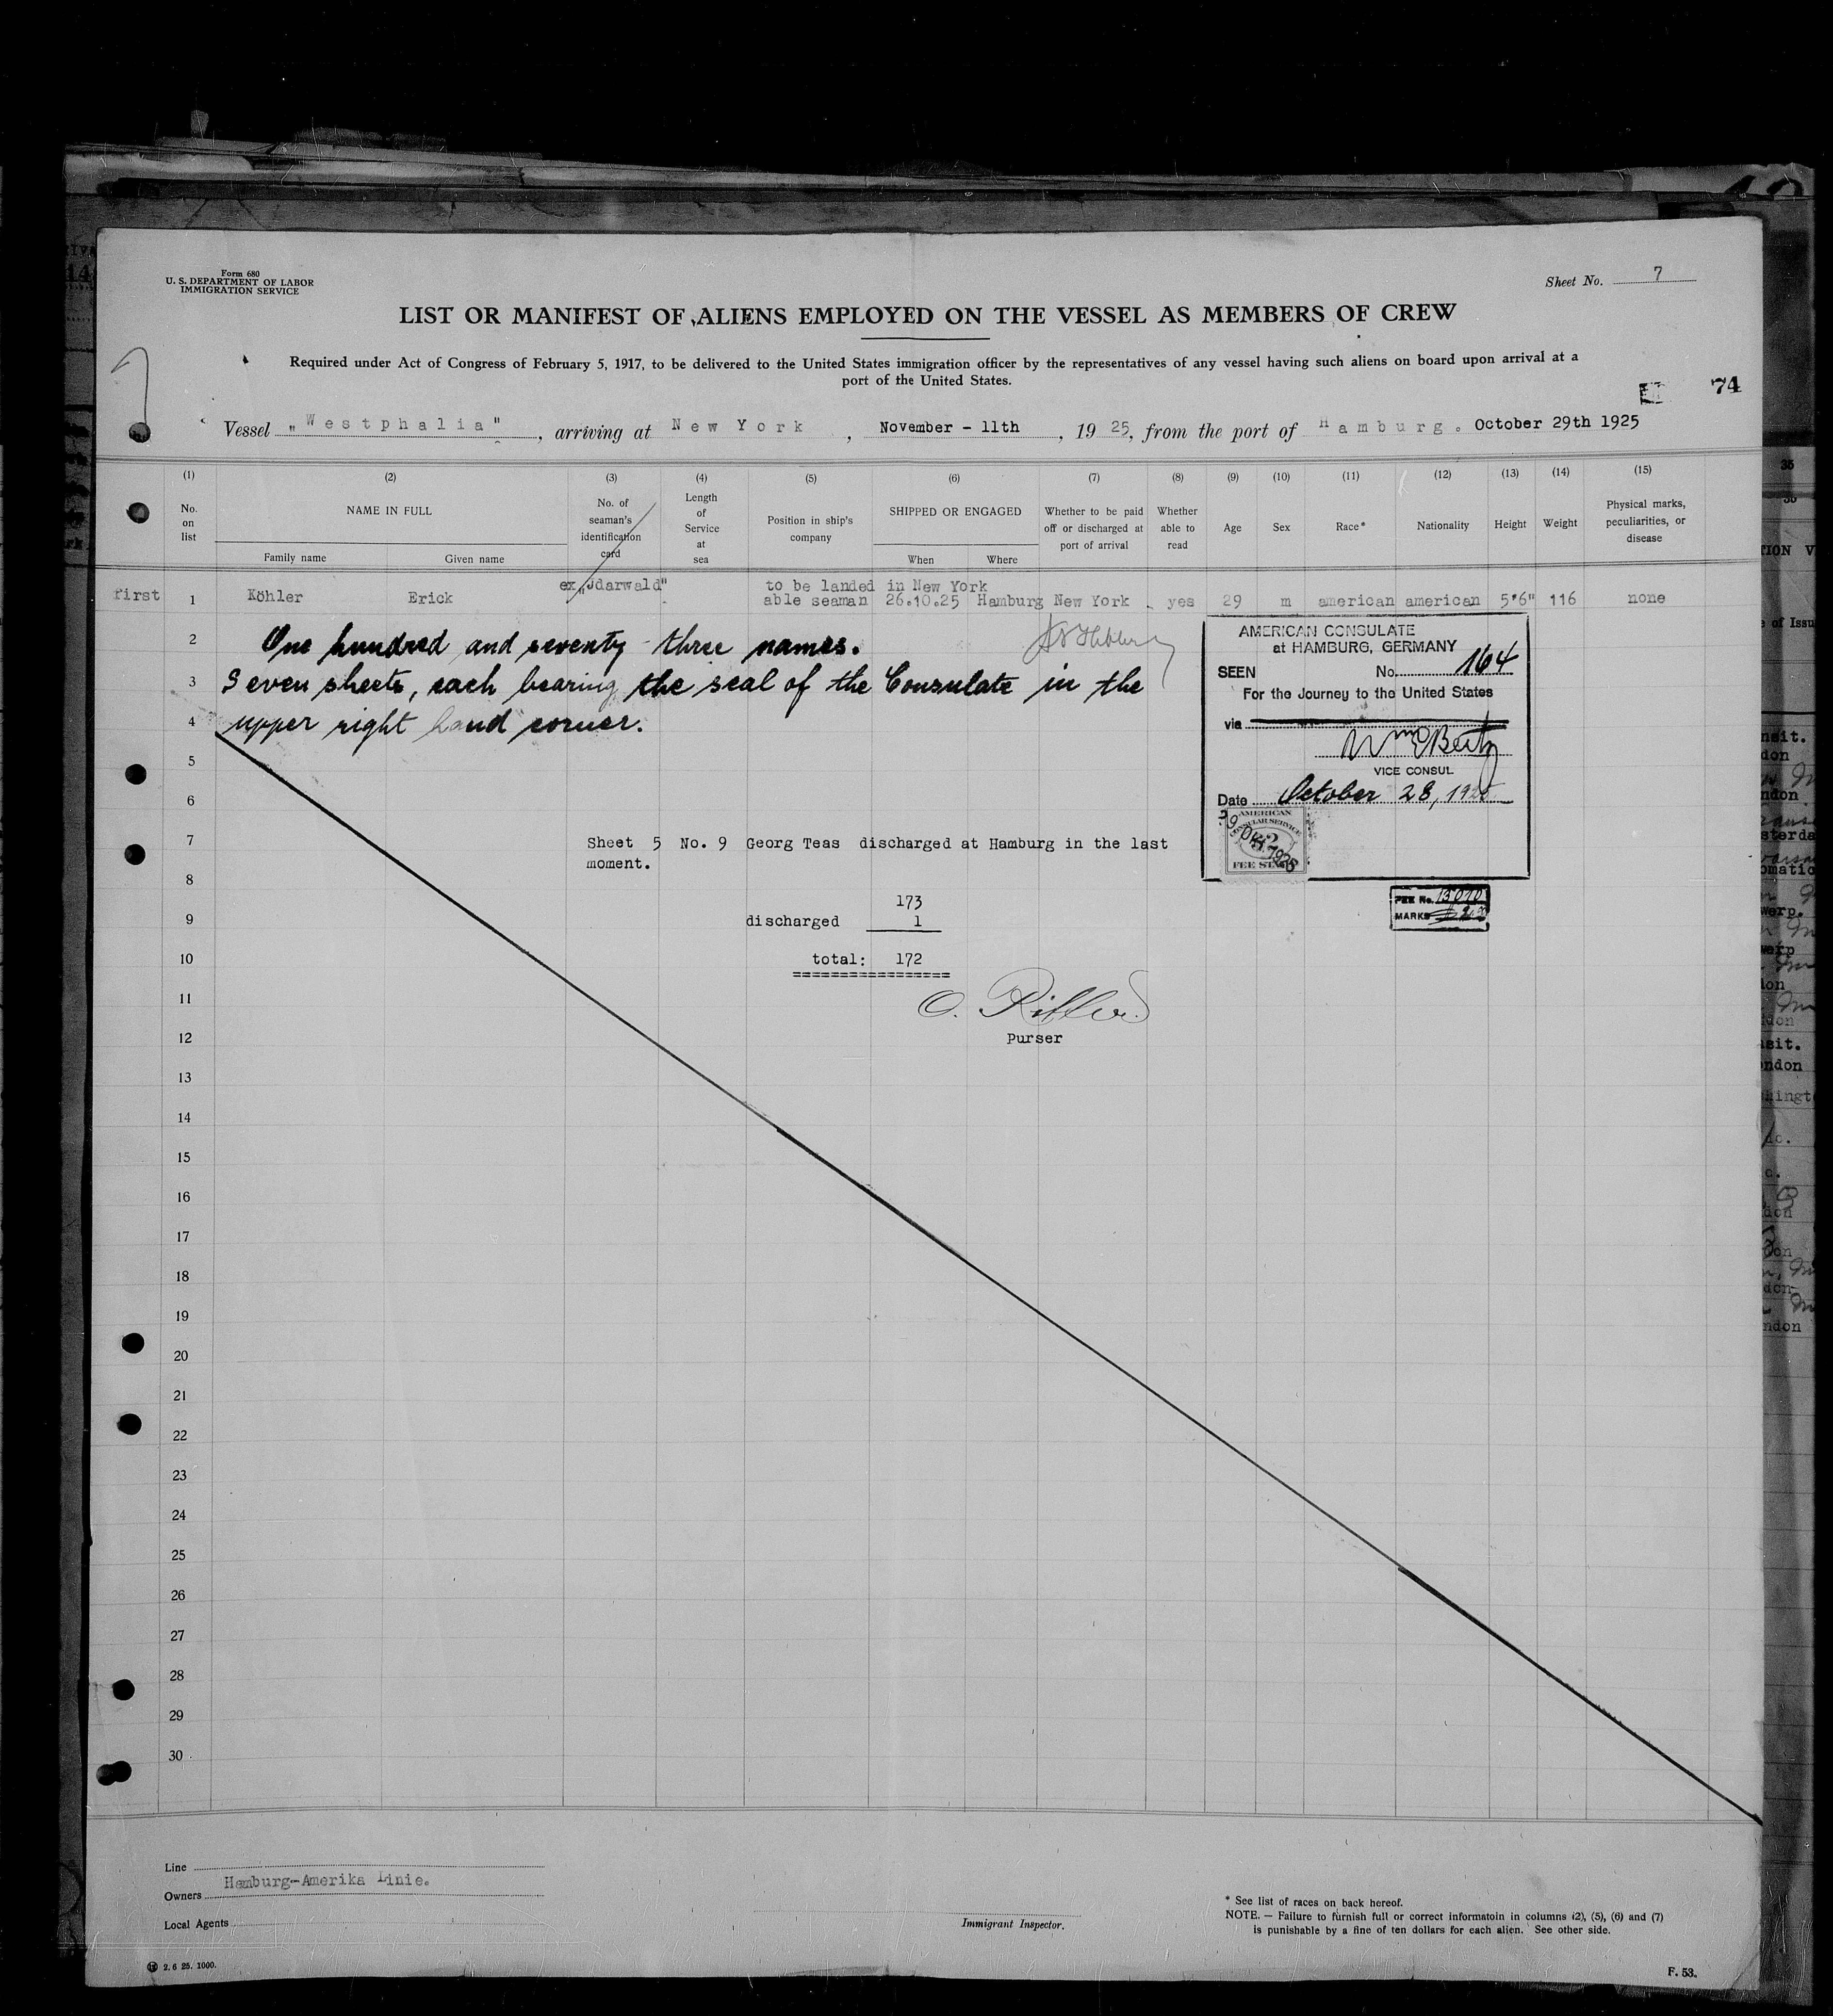 Form 680
U. S. DEPARTMENT OF LABOR
IMMIGRATION SERVICE
Sheet No. 7
LIST OR MANIFEST OF ALIENS EMPLOYED ON THE VESSEL AS MEMBERS OF CREW
Required under Act of Congress of February 5, 1917, to be delivered to the United States immigration officer by the representatives of any vessel having such aliens on board upon arrival at a
port of the United States.
74
Vessel „Westphalia", arriving at New York, November - 11th, 19 25, from the port of Hamburg. October 29th 1925
(1) (2) (3) (4) (5) (6) (7) (8) (9) (10) (11) (12) (13) (14) (15)
No. on list
NAME IN FULL
Family name Given name
No. of seaman's identification card
Length of Service at sea
Position in ship's company
SHIPPED OR ENGAGED
When Where
Whether to be paid off or discharged at port of arrival
Whether able to read
Age
Sex
Race*
Nationality
Height
Weight
Physical marks, peculiarities, or disease
ex „Jdarwald" to be landed in New York
first 1 Köhler Erick able seaman 26.10.25 Hamburg New York yes 29 m american american 5'6" 116 none
2 One hundred and seventy-three names.
3 Seven sheets, each bearing the seal of the Consulate in the
4 upper right hand corner.
AMERICAN CONSULATE
at HAMBURG, GERMANY
SEEN No. 164
For the Journey to the United States
via
VICE CONSUL
Date October 28, 1925
AMERICAN
CONSULAR SERVICE
FEE STAMP
FEE No. 13070
MARKS
5
6
7 Sheet 5 No. 9 Georg Teas discharged at Hamburg in the last
moment.
8
173
9 discharged 1
10 total: 172
11
12 Purser
13
14
15
16
17
18
19
20
21
22
23
24
25
26
27
28
29
30
Line
Owners Hamburg-Amerika Linie.
Local Agents
Immigrant Inspector.
* See list of races on back hereof.
NOTE. — Failure to furnish full or correct informatoin in columns (2), (5), (6) and (7)
is punishable by a fine of ten dollars for each alien. See other side.
2. 6 25. 1000.
F. 53.